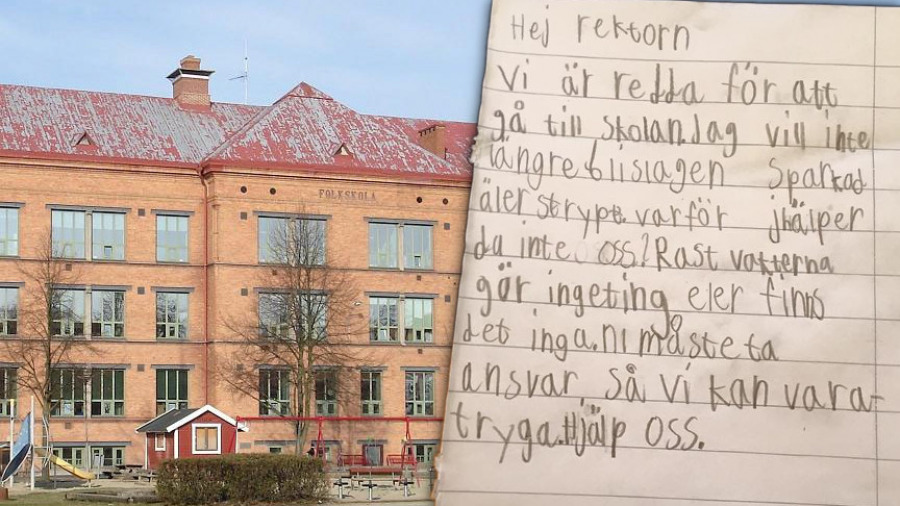 FOLKSKOLA
Hej rektorn
Vi är redda för att
gå till skolan. Jag vill inte
längre bli slagen Sparkad
äler strypt. varför jhälper
du inte oss? Rast vatterna
gör ingeting eler finns
det inga. ni måste ta
ansvar så vi kan vara
tryga. Hjälp oss.